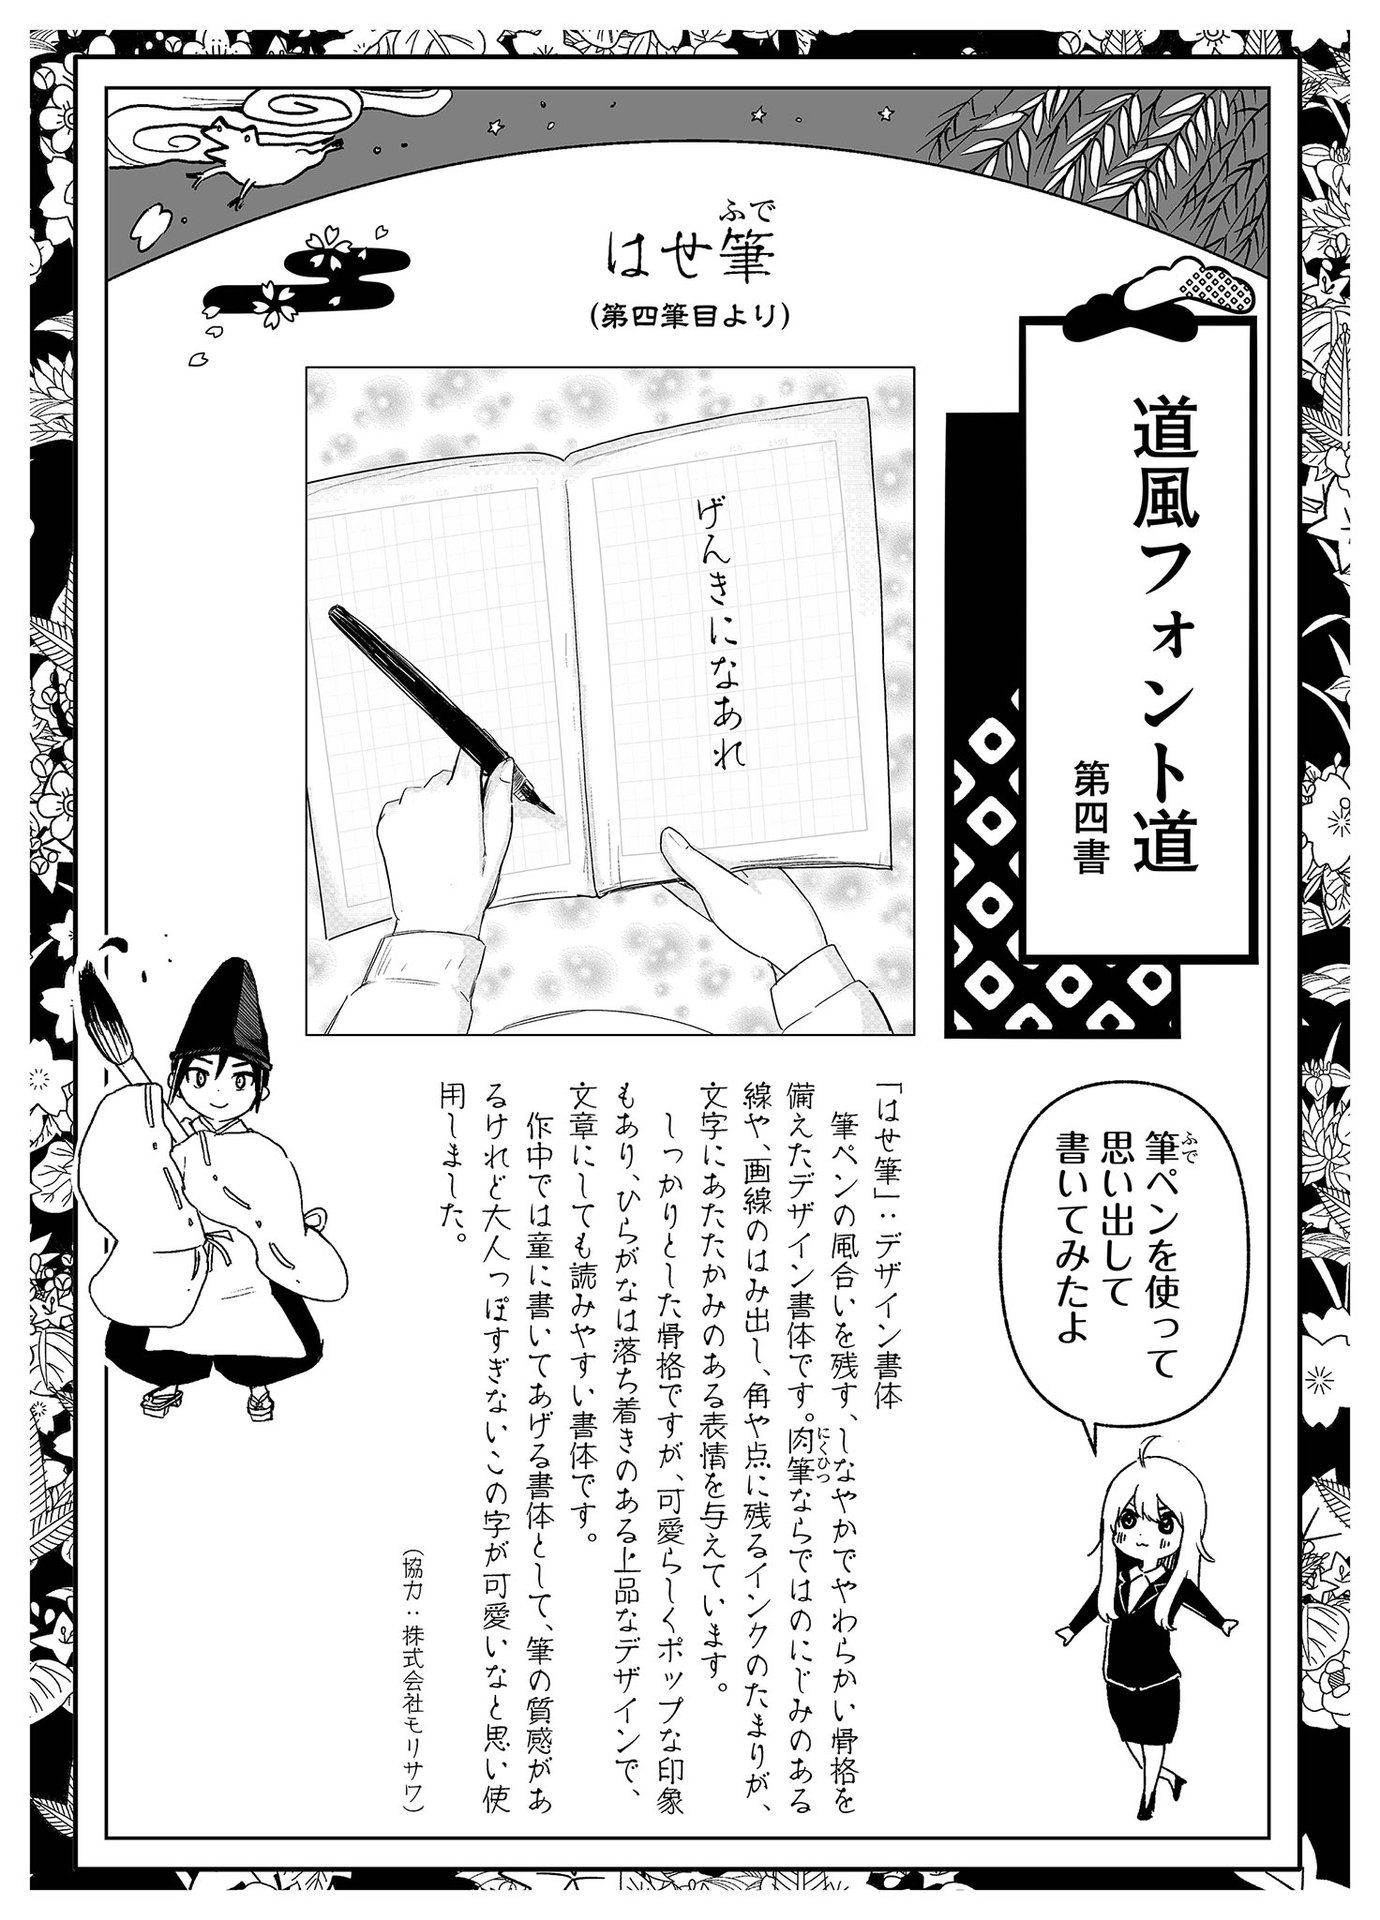 道風フォント道
第四書
はせ筆
ふで
(第四筆目より)
げんきになあれ
筆ペンを使って
ふで
思い出して
書いてみたよ
「はせ筆」：デザイン書体
筆ペンの風合いを残す、しなやかでやわらかい骨格を
備えたデザイン書体です。肉筆ならではのにじみのある
にくひつ
線や、画線のはみ出し、角や点に残るインクのたまりが、
文字にあたたかみのある表情を与えています。
しっかりとした骨格ですが、可愛らしくポップな印象
もあり、ひらがなは落ち着きのある上品なデザインで、
文章にしても読みやすい書体です。
作中では童に書いてあげる書体として、筆の質感があ
るけれど大人っぽすぎないこの字が可愛いなと思い使
用しました。
（協力：株式会社モリサワ）